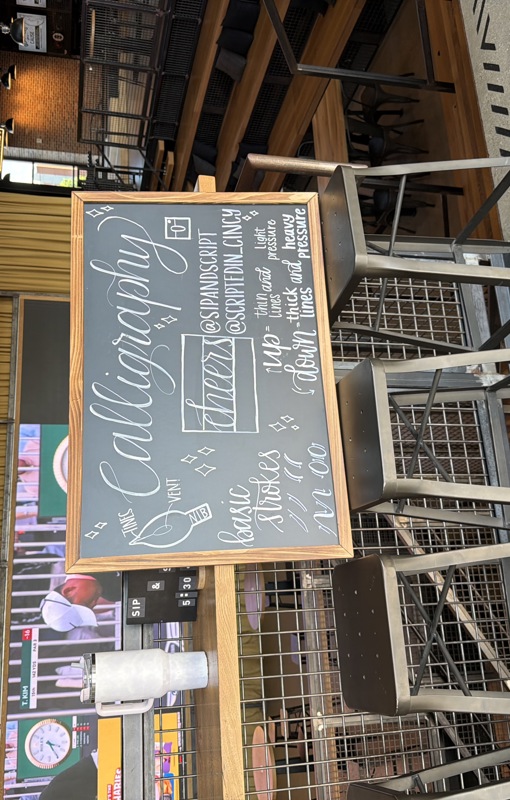 Calligraphy
TINES
VENT
NIB
cheers
"O"
@SIPANDSCRIPT
@SCRIPTEDIN_CINCY
basic
strokes
up = thin and light
lines pressure
down = thick and heavy
lines pressure
SIP
&
5:30
T. KIM
-16